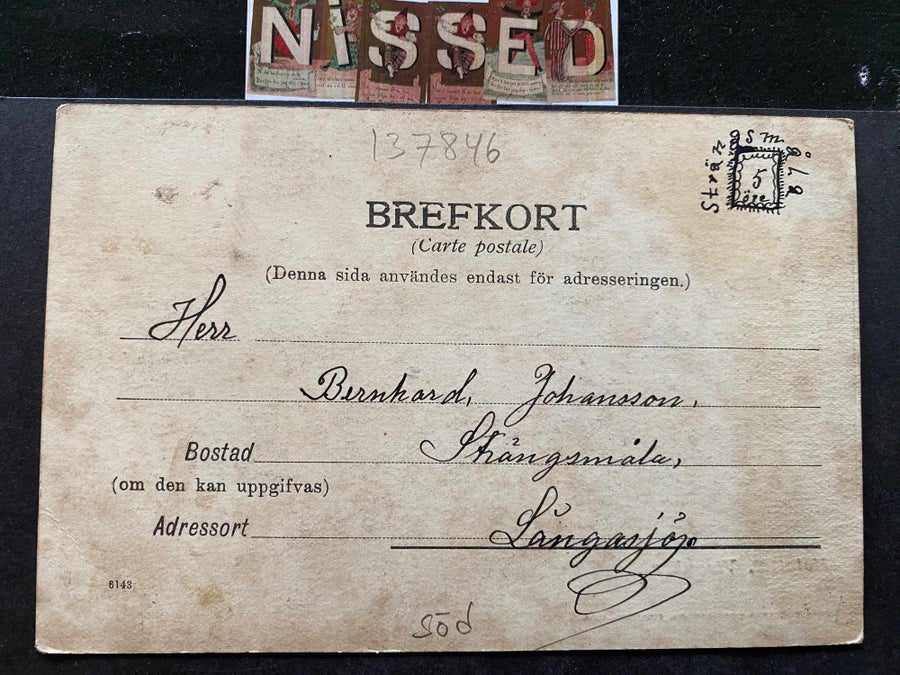 NISSED
137846
Strängsmåla
5
öre
BREFKORT
(Carte postale)
(Denna sida användes endast för adresseringen.)
Herr
Bernhard, Johansson,
Strångsmåla,
Bostad
(om den kan uppgifvas)
Adressort Långasjö,
6143
söd